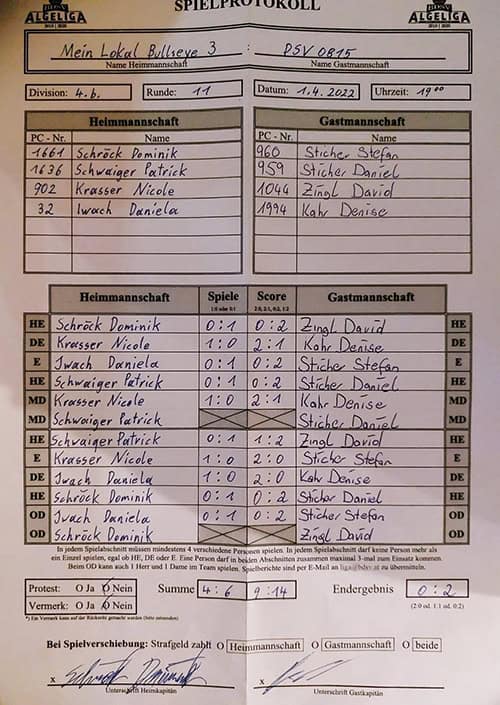 SPIELPROTOKOLL
BDSV ALGELIGA BDSV ALGELIGA
Mein Lokal Bullseye 3 : DSV 0815
Name Heimmannschaft Name Gastmannschaft
Division: 4.b. Runde: 11 Datum: 1.4.2022 Uhrzeit: 19⁰⁰
Heimmannschaft Gastmannschaft
PC - Nr. Name PC - Nr. Name
1661 Schröck Dominik 960 Sticher Stefan
1636 Schwaiger Patrick 959 Sticher Daniel
902 Krasser Nicole 1044 Zingl David
32 Iwach Daniela 1994 Kahr Denise
Heimmannschaft Spiele Score Gastmannschaft
1:0 oder 0:1 2:0, 2:1, 0:2, 1:2
HE Schröck Dominik 0:1 0:2 Zingl David HE
DE Krasser Nicole 1:0 2:1 Kahr Denise DE
E Iwach Daniela 0:1 0:2 Sticher Stefan E
HE Schwaiger Patrick 0:1 0:2 Sticher Daniel HE
MD Krasser Nicole 1:0 2:1 Kahr Denise MD
MD Schwaiger Patrick Sticher Daniel MD
HE Schwaiger Patrick 0:1 1:2 Zingl David HE
E Krasser Nicole 1:0 2:0 Sticher Stefan E
DE Iwach Daniela 1:0 2:0 Kahr Denise DE
HE Schröck Dominik 0:1 0:2 Sticher Daniel HE
OD Iwach Daniela 0:1 0:2 Sticher Stefan OD
OD Schröck Dominik Zingl David OD
In jedem Spielabschnitt müssen mindestens 4 verschiedene Personen spielen. In jedem Spielabschnitt darf keine Person mehr als
ein Einzel spielen, egal ob HE, DE oder E. Eine Person darf in beiden Abschnitten zusammen maximal 3-mal zum Einsatz kommen.
Beim OD kann auch 1 Herr und 1 Dame im Team spielen. Spielberichte sind per E-Mail an liga@bdsv.at zu übermitteln.
Protest: O Ja O Nein Summe 4:6 9:14 Endergebnis 0:2
Vermerk: O Ja O Nein (2:0 od. 1:1 od. 0:2)
*) Ein Vermerk kann auf der Rückseite gemacht werden (bitte zutreffendes)
Bei Spielverschiebung: Strafgeld zahlt O Heimmannschaft O Gastmannschaft O beide
x Schröck Dominik x
Unterschrift Heimkapitän Unterschrift Gastkapitän